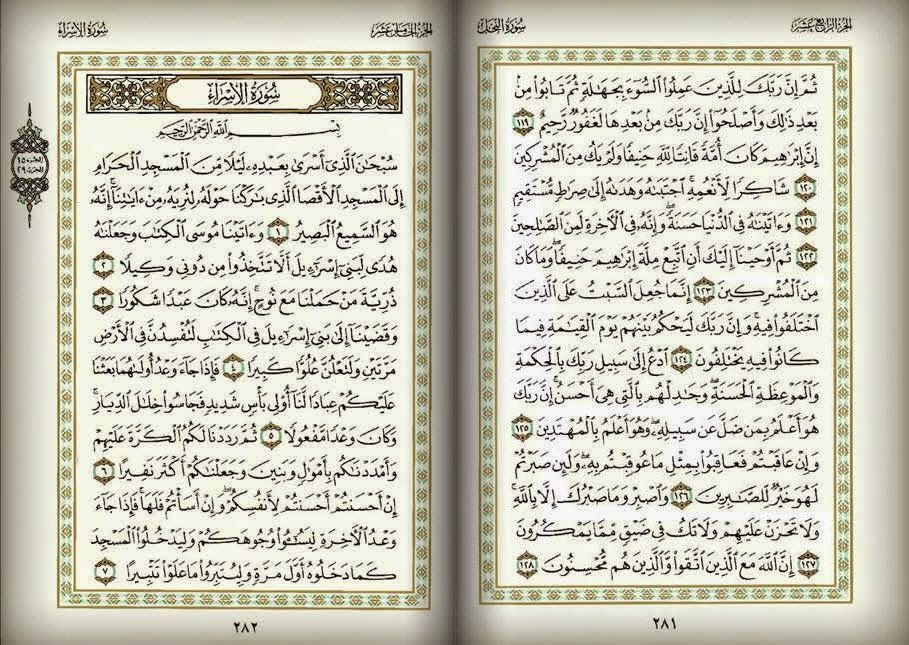 الجزء الرابع عشر
سورة النحل
ثُمَّ إِنَّ رَبَّكَ لِلَّذِينَ عَمِلُوا۟ ٱلسُّوٓءَ بِجَهَٰلَةٍ ثُمَّ تَابُوا۟ مِنۢ
بَعْدِ ذَٰلِكَ وَأَصْلَحُوٓا۟ إِنَّ رَبَّكَ مِنۢ بَعْدِهَا لَغَفُورٌ رَّحِيمٌ ١١٩
إِنَّ إِبْرَٰهِيمَ كَانَ أُمَّةً قَانِتًا لِّلَّهِ حَنِيفًا وَلَمْ يَكُ مِنَ ٱلْمُشْرِكِينَ
١٢٠ شَاكِرًا لِّأَنْعُمِهِ ۚ ٱجْتَبَىٰهُ وَهَدَىٰهُ إِلَىٰ صِرَٰطٍ مُّسْتَقِيمٍ
١٢١ وَءَاتَيْنَٰهُ فِى ٱلدُّنْيَا حَسَنَةً ۖ وَإِنَّهُۥ فِى ٱلْءَاخِرَةِ لَمِنَ ٱلصَّٰلِحِينَ
١٢٢ ثُمَّ أَوْحَيْنَآ إِلَيْكَ أَنِ ٱتَّبِعْ مِلَّةَ إِبْرَٰهِيمَ حَنِيفًا ۖ وَمَا كَانَ
مِنَ ٱلْمُشْرِكِينَ ١٢٣ إِنَّمَا جُعِلَ ٱلسَّبْتُ عَلَى ٱلَّذِينَ
ٱخْتَلَفُوا۟ فِيهِ ۚ وَإِنَّ رَبَّكَ لَيَحْكُمُ بَيْنَهُمْ يَوْمَ ٱلْقِيَٰمَةِ فِيمَا
كَانُوا۟ فِيهِ يَخْتَلِفُونَ ١٢٤ ٱدْعُ إِلَىٰ سَبِيلِ رَبِّكَ بِٱلْحِكْمَةِ
وَٱلْمَوْعِظَةِ ٱلْحَسَنَةِ ۖ وَجَٰدِلْهُم بِٱلَّتِى هِىَ أَحْسَنُ ۚ إِنَّ رَبَّكَ
هُوَ أَعْلَمُ بِمَن ضَلَّ عَن سَبِيلِهِۦ ۖ وَهُوَ أَعْلَمُ بِٱلْمُهْتَدِينَ ١٢٥
وَإِنْ عَاقَبْتُمْ فَعَاقِبُوا۟ بِمِثْلِ مَا عُوقِبْتُم بِهِۦ ۖ وَلَئِن صَبَرْتُمْ
لَهُوَ خَيْرٌ لِّلصَّٰبِرِينَ ١٢٦ وَٱصْبِرْ وَمَا صَبْرُكَ إِلَّا بِٱللَّهِ ۚ
وَلَا تَحْزَنْ عَلَيْهِمْ وَلَا تَكُ فِى ضَيْقٍ مِّمَّا يَمْكُرُونَ
١٢٧ إِنَّ ٱللَّهَ مَعَ ٱلَّذِينَ ٱتَّقَوا۟ وَّٱلَّذِينَ هُم مُّحْسِنُونَ ١٢٨
٢٨١
الجزء الخامس عشر
سورة الإسراء
سُورَةُ الإِسْرَاءِ
بِسْمِ ٱللَّهِ ٱلرَّحْمَٰنِ ٱلرَّحِيمِ
سُبْحَٰنَ ٱلَّذِىٓ أَسْرَىٰ بِعَبْدِهِۦ لَيْلًا مِّنَ ٱلْمَسْجِدِ ٱلْحَرَامِ
إِلَى ٱلْمَسْجِدِ ٱلْأَقْصَا ٱلَّذِى بَٰرَكْنَا حَوْلَهُۥ لِنُرِيَهُۥ مِنْ ءَايَٰتِنَآ ۚ إِنَّهُۥ
هُوَ ٱلسَّمِيعُ ٱلْبَصِيرُ ١ وَءَاتَيْنَا مُوسَى ٱلْكِتَٰبَ وَجَعَلْنَٰهُ
هُدًى لِّبَنِىٓ إِسْرَٰٓءِيلَ أَلَّا تَتَّخِذُوا۟ مِن دُونِى وَكِيلًا ٢
ذُرِّيَّةَ مَنْ حَمَلْنَا مَعَ نُوحٍ ۚ إِنَّهُۥ كَانَ عَبْدًا شَكُورًا ٣
وَقَضَيْنَآ إِلَىٰ بَنِىٓ إِسْرَٰٓءِيلَ فِى ٱلْكِتَٰبِ لَتُفْسِدُنَّ فِى ٱلْأَرْضِ
مَرَّتَيْنِ وَلَتَعْلُنَّ عُلُوًّا كَبِيرًا ٤ فَإِذَا جَآءَ وَعْدُ أُولَىٰهُمَا بَعَثْنَا
عَلَيْكُمْ عِبَادًا لَّنَآ أُو۟لِى بَأْسٍ شَدِيدٍ فَجَاسُوا۟ خِلَٰلَ ٱلدِّيَارِ ۚ
وَكَانَ وَعْدًا مَّفْعُولًا ٥ ثُمَّ رَدَدْنَا لَكُمُ ٱلْكَرَّةَ عَلَيْهِمْ
وَأَمْدَدْنَٰكُم بِأَمْوَٰلٍ وَبَنِينَ وَجَعَلْنَٰكُمْ أَكْثَرَ نَفِيرًا ٦
إِنْ أَحْسَنتُمْ أَحْسَنتُمْ لِأَنفُسِكُمْ ۖ وَإِنْ أَسَأْتُمْ فَلَهَا ۚ فَإِذَا جَآءَ
وَعْدُ ٱلْءَاخِرَةِ لِيَسُۥٓـُٔوا۟ وُجُوهَكُمْ وَلِيَدْخُلُوا۟ ٱلْمَسْجِدَ
كَمَا دَخَلُوهُ أَوَّلَ مَرَّةٍ وَلِيُتَبِّرُوا۟ مَا عَلَوْا۟ تَتْبِيرًا ٧
٢٨٢
الجزء ١٥
الحزب ٢٩